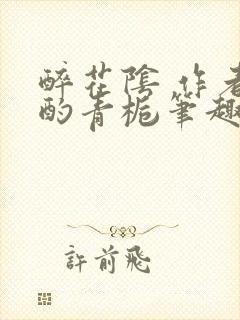 醉花陰 作者
酌青栀筆趣
許前飛